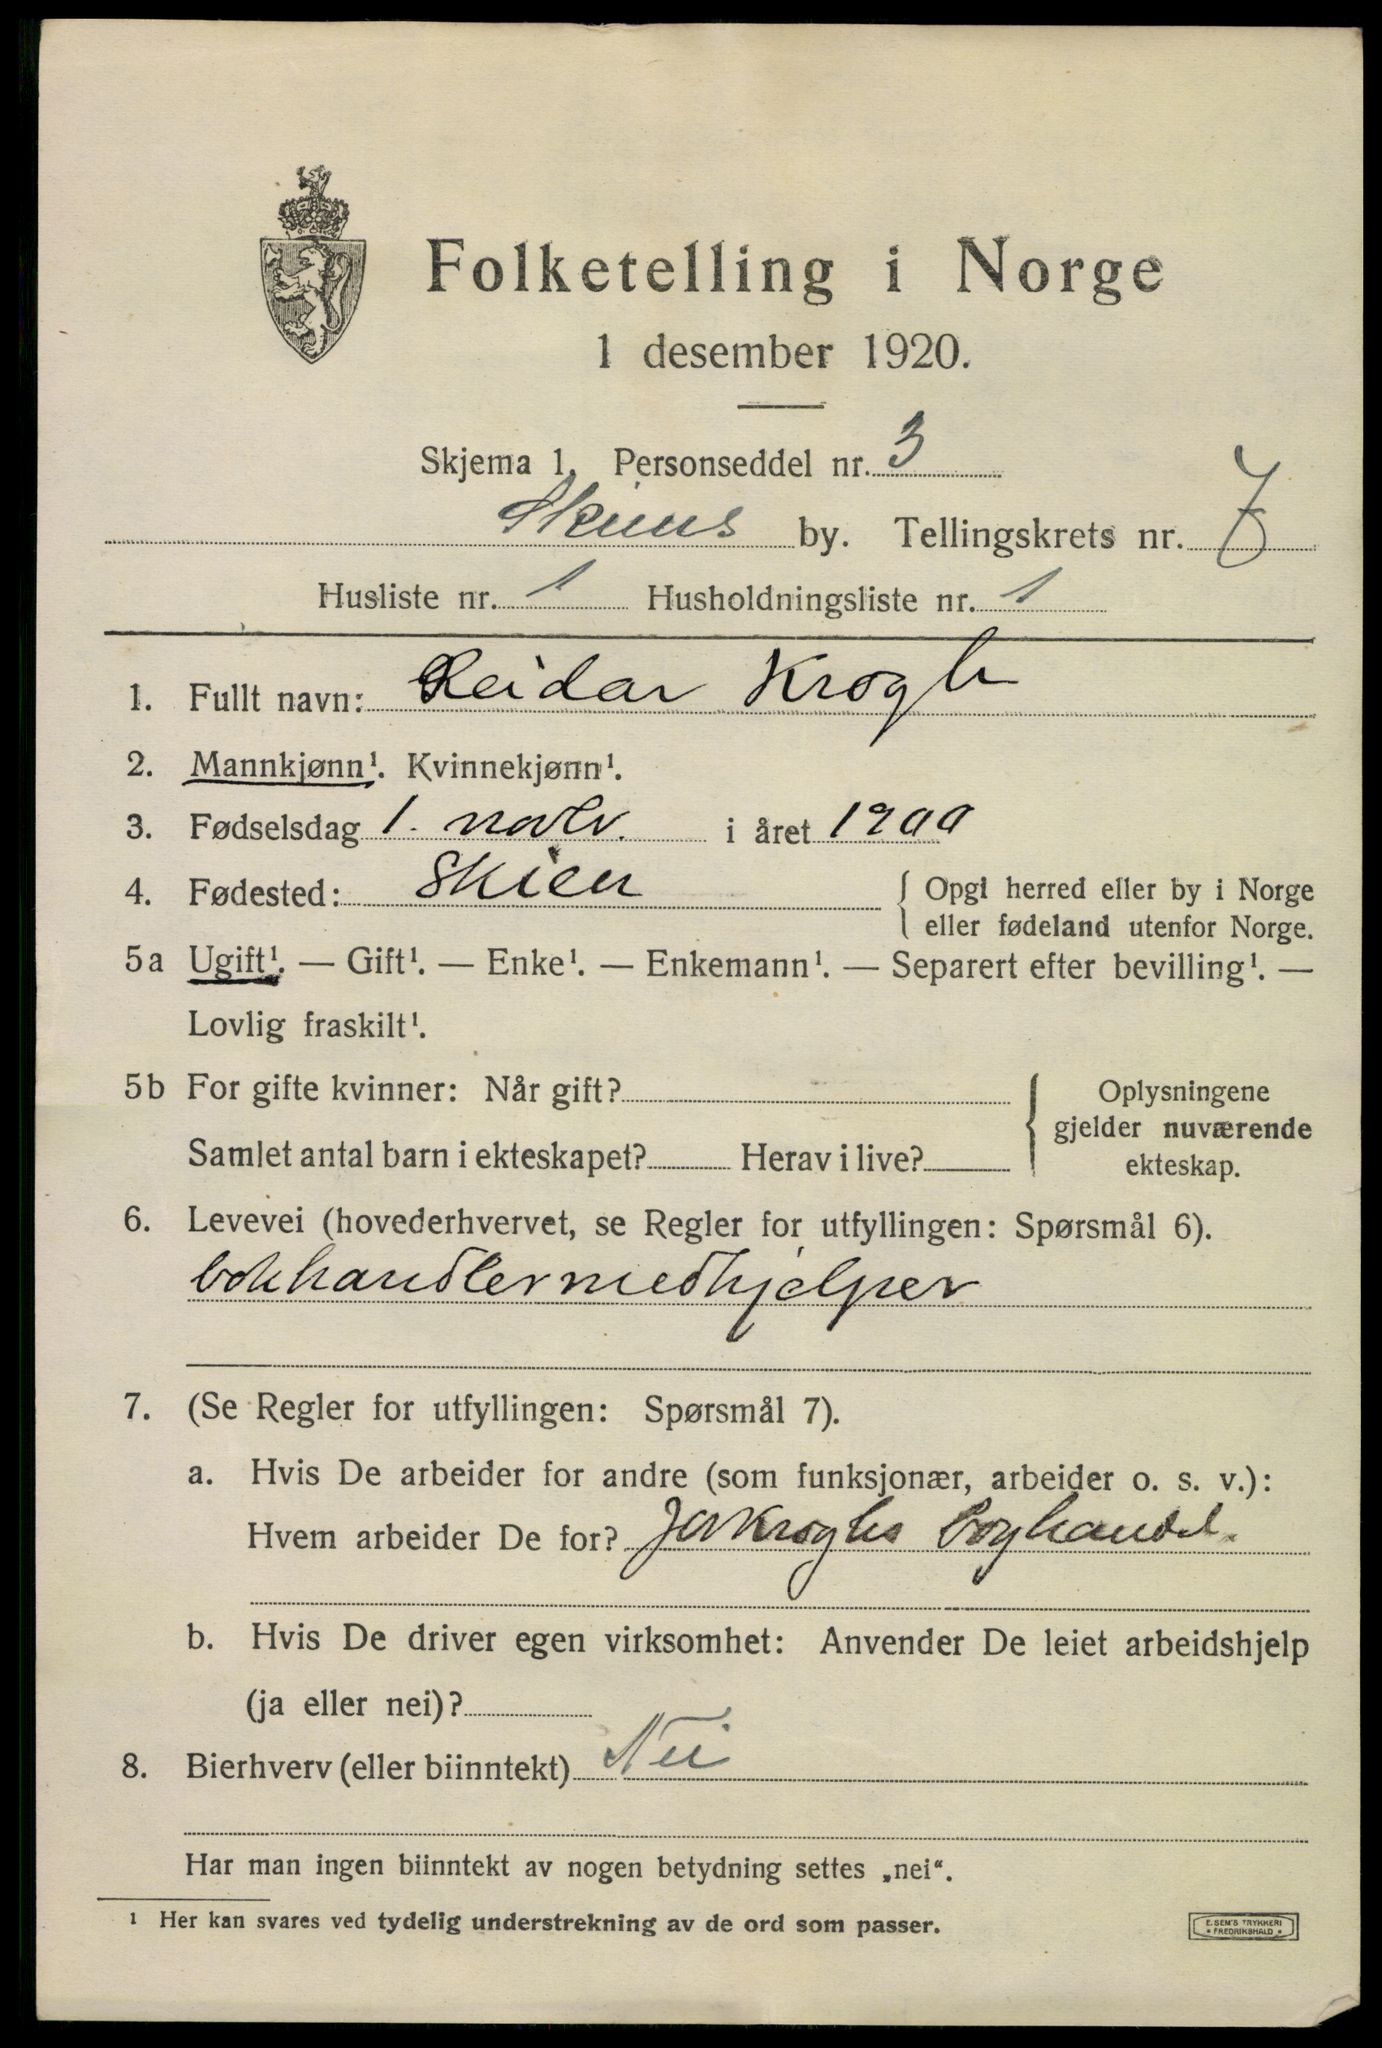 Folketelling i Norge
1 desember 1920.
Skjema 1. Personseddel nr. 3
Skiens by. Tellingskrets nr. 7
Husliste nr. 1 Husholdningsliste nr. 1
1. Fullt navn: Reidar Krogh
2. Mannkjønn¹. Kvinnekjønn¹.
3. Fødselsdag 1. novbr. i året 1900
4. Fødested: Skien { Opgi herred eller by i Norge
eller fødeland utenfor Norge.
5a Ugift¹. — Gift¹. — Enke¹. — Enkemann¹. — Separert efter bevilling¹. —
Lovlig fraskilt¹.
5b For gifte kvinner: Når gift? { Oplysningene
gjelder nuværende
Samlet antal barn i ekteskapet? Herav i live? ekteskap.
6. Levevei (hovederhvervet, se Regler for utfyllingen: Spørsmål 6).
bokhandlermedhjelper
7. (Se Regler for utfyllingen: Spørsmål 7).
a. Hvis De arbeider for andre (som funksjonær, arbeider o. s. v.):
Hvem arbeider De for? Kroghs boghandel.
b. Hvis De driver egen virksomhet: Anvender De leiet arbeidshjelp
(ja eller nei)?
8. Bierhverv (eller biinntekt) Nei
Har man ingen biinntekt av nogen betydning settes „nei“.
¹ Her kan svares ved tydelig understrekning av de ord som passer.
E. SEM'S TRYKKERI
* FREDRIKSHALD *